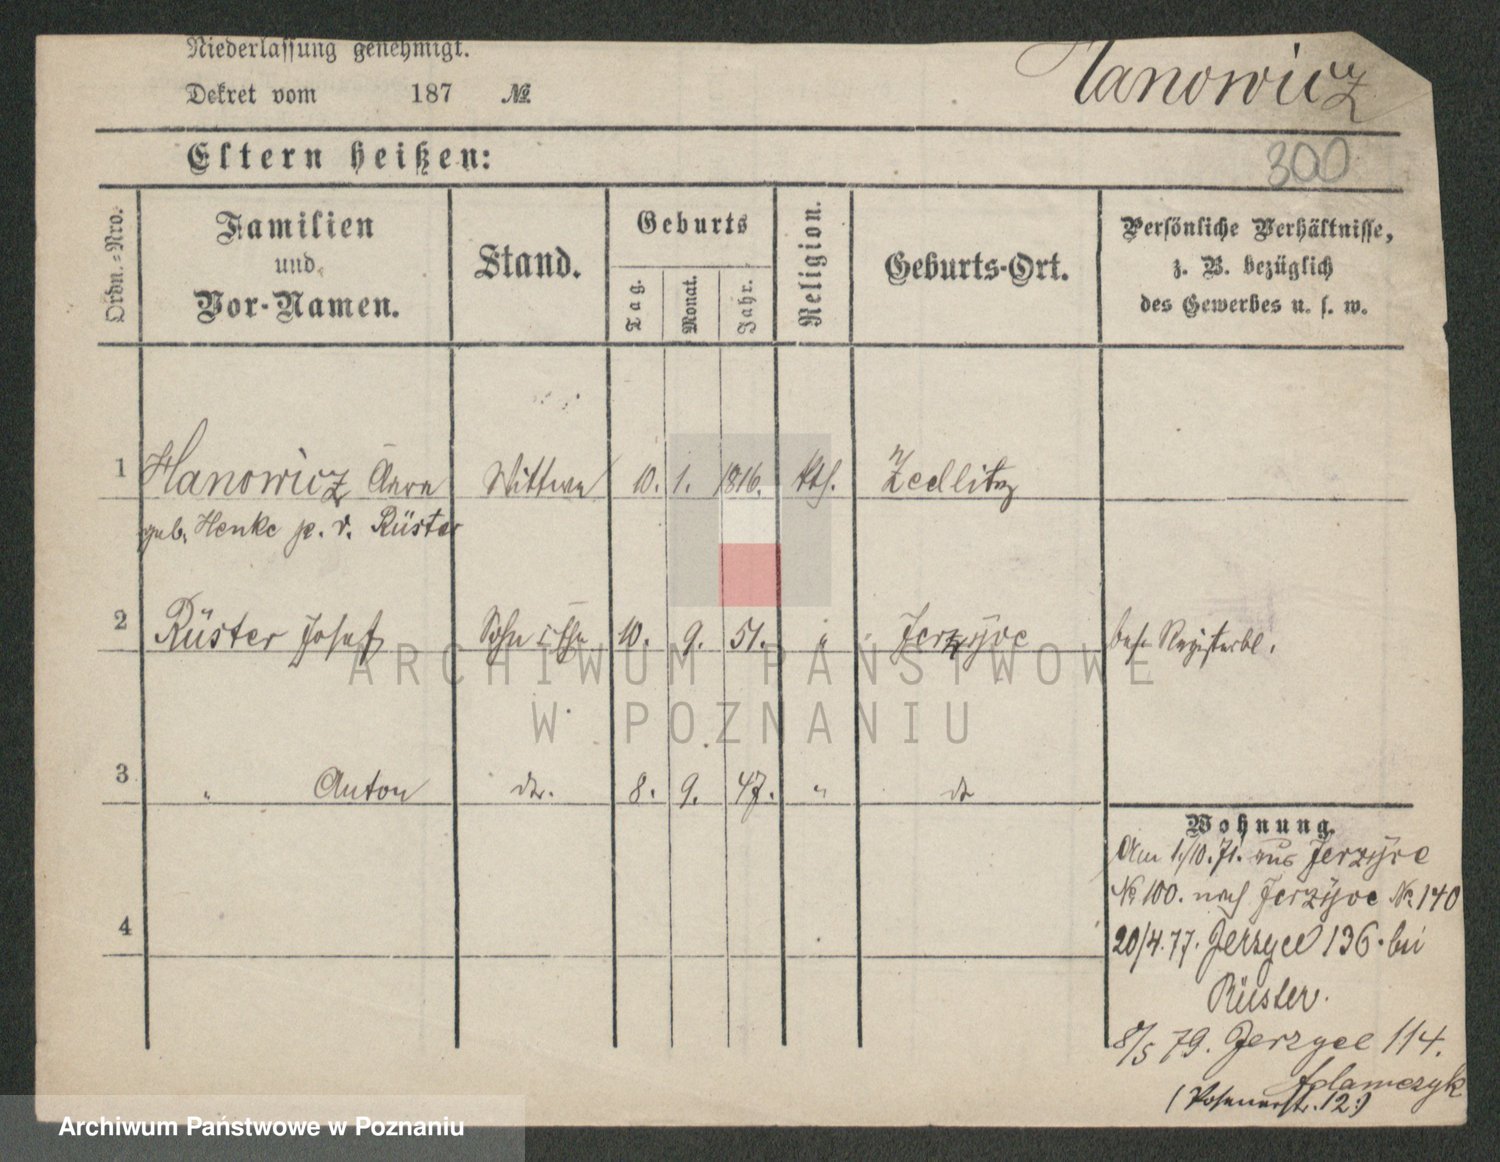 Niederlassung genehmigt.
Dekret vom 187 №
Hanowicz
Eltern heißen:
300
Ordn.-Nro.
Familien
und
Vor-Namen.
Stand.
Geburts
Tag.
Monat.
Jahr.
Religion.
Geburts-Ort.
Persönliche Verhältnisse,
z. B. bezüglich
des Gewerbes u. s. w.
1 Hanowicz Anna Wittwe 10. 1. 1816. kth. Zedlitz
geb. Henke p. v. Rüster
2 Rüster Josef Sohn 10. 9. 51. " Jerzyce bes. Registerbl.
3 " Anton do. 8. 9. 47. " do
4
Wohnung.
Am 1./10.71. aus Jerzyce
№ 100. nach Jerzyce № 140
20/4.77. Jerzyce 136. bei
Rüster.
8/5 79. Jerzyce 114.
Adamczyk
(Posenerstr. 12.)
ARCHIWUM PAŃSTWOWE
W POZNANIU
Archiwum Państwowe w Poznaniu